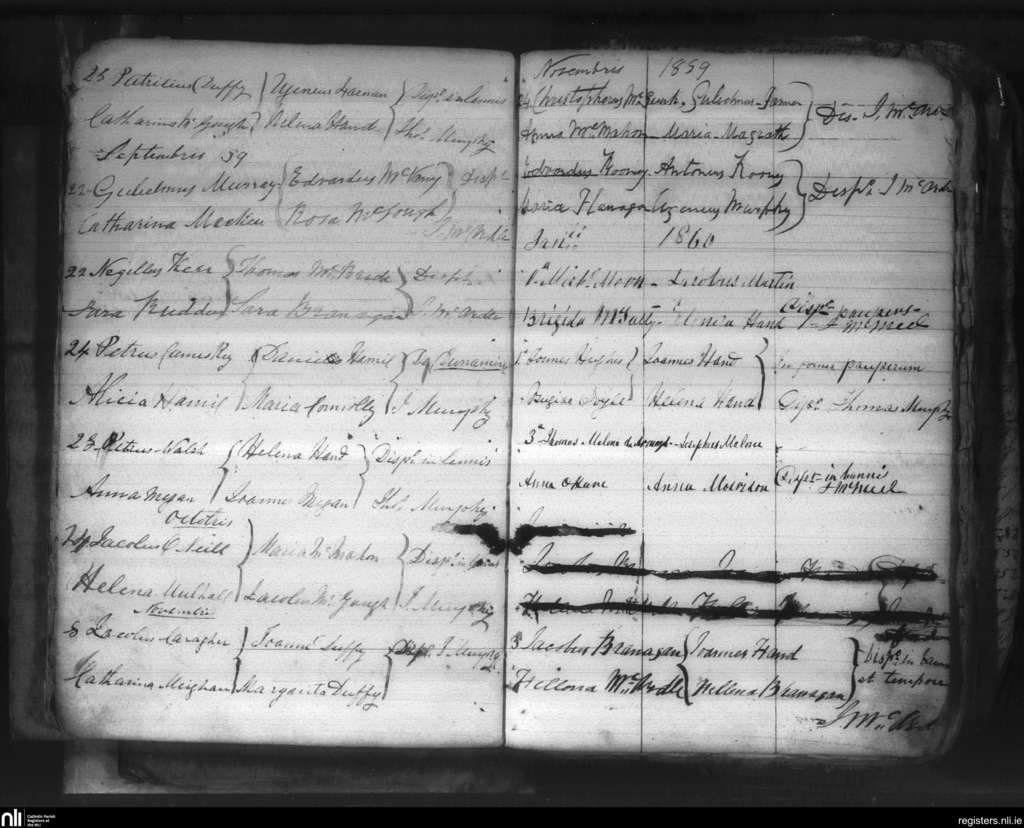 25 Patricius Duffy Ugeneus Keenan Dispe. in bannis
Catharina McGough Helena Hand Thos. Murphy
Septembris 59
22 Gulielmus Murray Edvardus McKevny Dispe.
Catharina Meckin Rosa McGough J. McArdle
22 Negellus Kerr Thomas McBrede Dispe.
Sara Rudden Sara Branagan J. McArdle
24 Petrus James Daniel Hamil
Alicia Hamil Maria Connolly J. Murphy
23 Petrus Walsh Helena Hand Dispe. in bannis
Anna Megan Joannes Megan Thos. Murphy
Octobris
24 Jacobus O'Neill Maria McMahon Dispe. in
Helena Mulhall Jacobus McGough J. Murphy
Novembris
8 Jacobus Caragher Joannes Duffy Dispe. J. Murphy
Katharina Meighan Margarita Duffy
Novembris 1859
24 Christopherus McGuerk Gulielmus Farmer Dis. J. McArdle
Anna McMahon Maria Magrath
Edvardus Rooney Antonius Rooney Dispe. J McArdle
Maria Flanagan Ugeneus Murphy
Janii 1860
1a Micl. Moon Jacobus Martin
Brigida McNulty Hand Dispe. pauperes
J McNeel
Joannes Hughes Joannes Hand In forma pauperum
Brigida Boyle Helena Hand Dispe. Thomas Murphy
3a Thomas Malone Josephus Malone
Anna OHare Anna Morrison Dispet. in banni
J McNeel
3 Jacobus Branagan Joannes Hand Dispe. in bannis
Hellena McArdle Hellena Branagan et tempore
J McArdle
nli Catholic Parish Registers at the NLI
registers.nli.ie